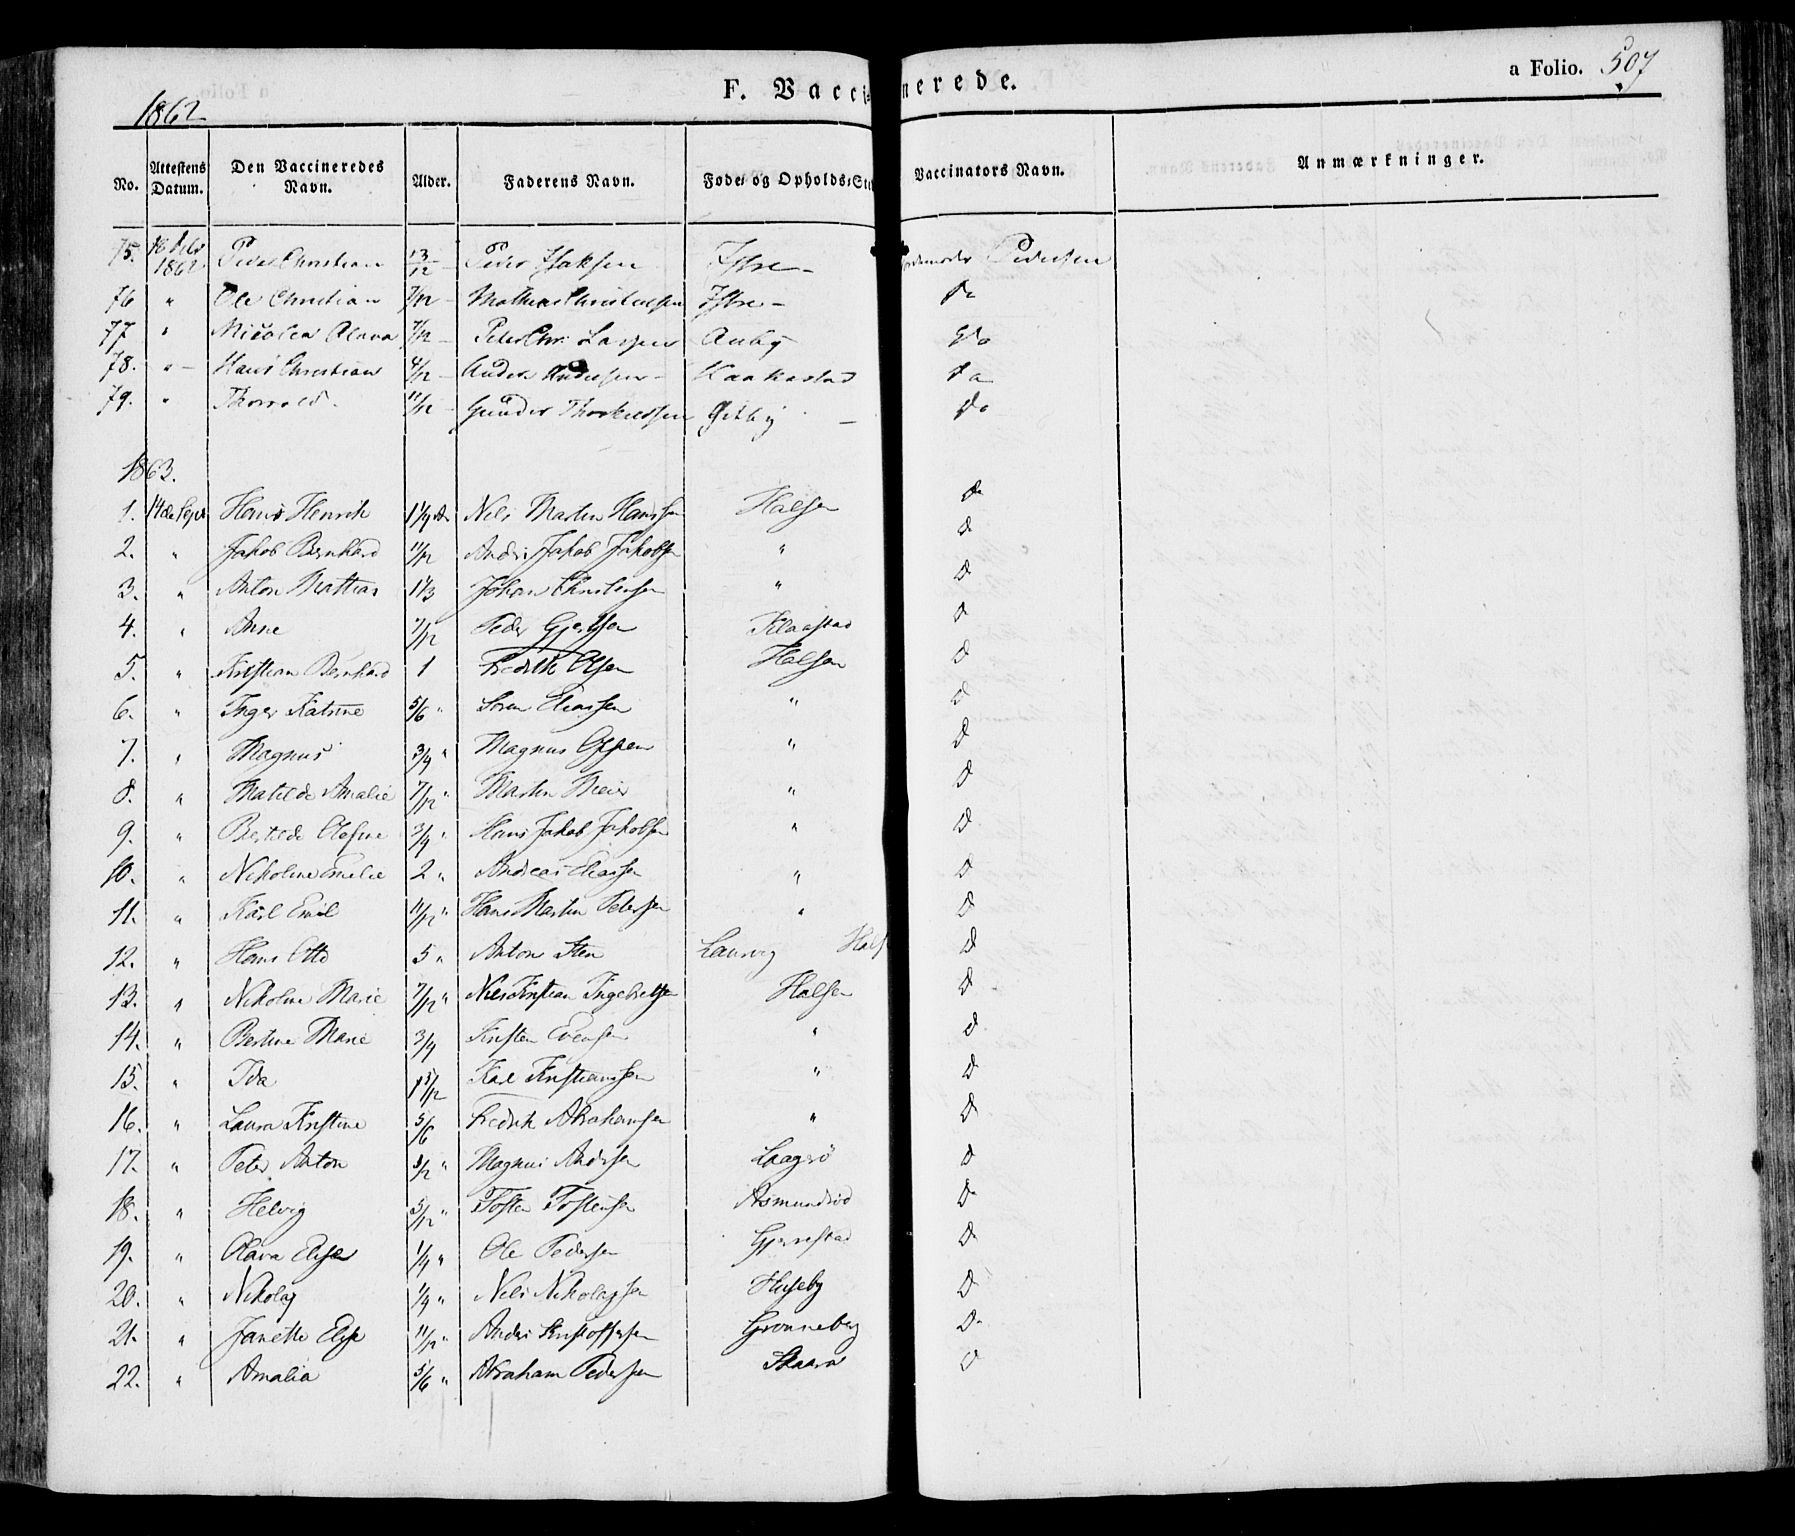 F. Vaccinerede.
a Folio. 507
1862
No. Attestens Datum. Den Vaccineredes Navn. Alder. Faderens Navn. Føde- og Opholds-Sted Vaccinators Navn. Anmærkninger.
75. 1862 Peder Christian 13/12 Peder Isaksen Istre Pedersen
76 " Ole Christian 7/12 Mathias Christensen Istre Do
77 " Nicolea Olava 7/12 Peder Chr. Auby Do
78. " Hans Christian 4/12 Anders Andersen Kaakestad Do
79. " Thorvald 11/12 Gunder Thorkildsen Do
1863.
1. 14de Sept Hans Henrik 1 1/4 Nils Martin Hanssen Halsen D
2. " Jakob Bernhard 11/12 Anders Jakob Jakobsen " D
3. " Anton Mattias 1 1/3 Johan Christensen " D
4. " Anne 7/12 Peder Gjertsen Klaastad D
5. " Kristian Bernhard 1 Fredrik Olsen Halsen D
6. " Inger Katrine 5/6 " Søren Eliassen " D
7. " Magnus 3/4 " Magnus " D
8. " Matilde Amalie 7/12 " Martin Meier " D
9. " Bertilde Olefine 3/4 " Hans Jakob Jakobsen " D
10. " Nikoline Emelie 2 " Andreas Eliassen " D
11. " Karl Emil 11/12 " Hans Martin Petersen " D
12. " Hans Otto 5 " Anton Sten Laurvig Hals D
13. " Nikoline Marie 7/12 " Nils Kristian Ingebretsen Halsen D
14. " Bertine Marie 3/4 Kristen Evensen " D
15. " Ida 1 5/12 Karl Kristianssen " D
16. " Laura Kristine 5/6 Fredrik Abrahamsen " D
17. " Peter Anton /12 " Magnus Andersen Laagrø D
18. " Helvig 5/12 " Tosten Tostensen Asmundrød D
19. " Olava Elise 1/4 " Ole Pedersen Gjerrestad D
20. " Nikolaj 1/4 " Nils Nikolaysen Huseby D
21. " Janette Elise 11/12 " Anders Kristoffersen Grønneberg D
22. " Amalia 5/6 " Abraham Pedersen Skaara D